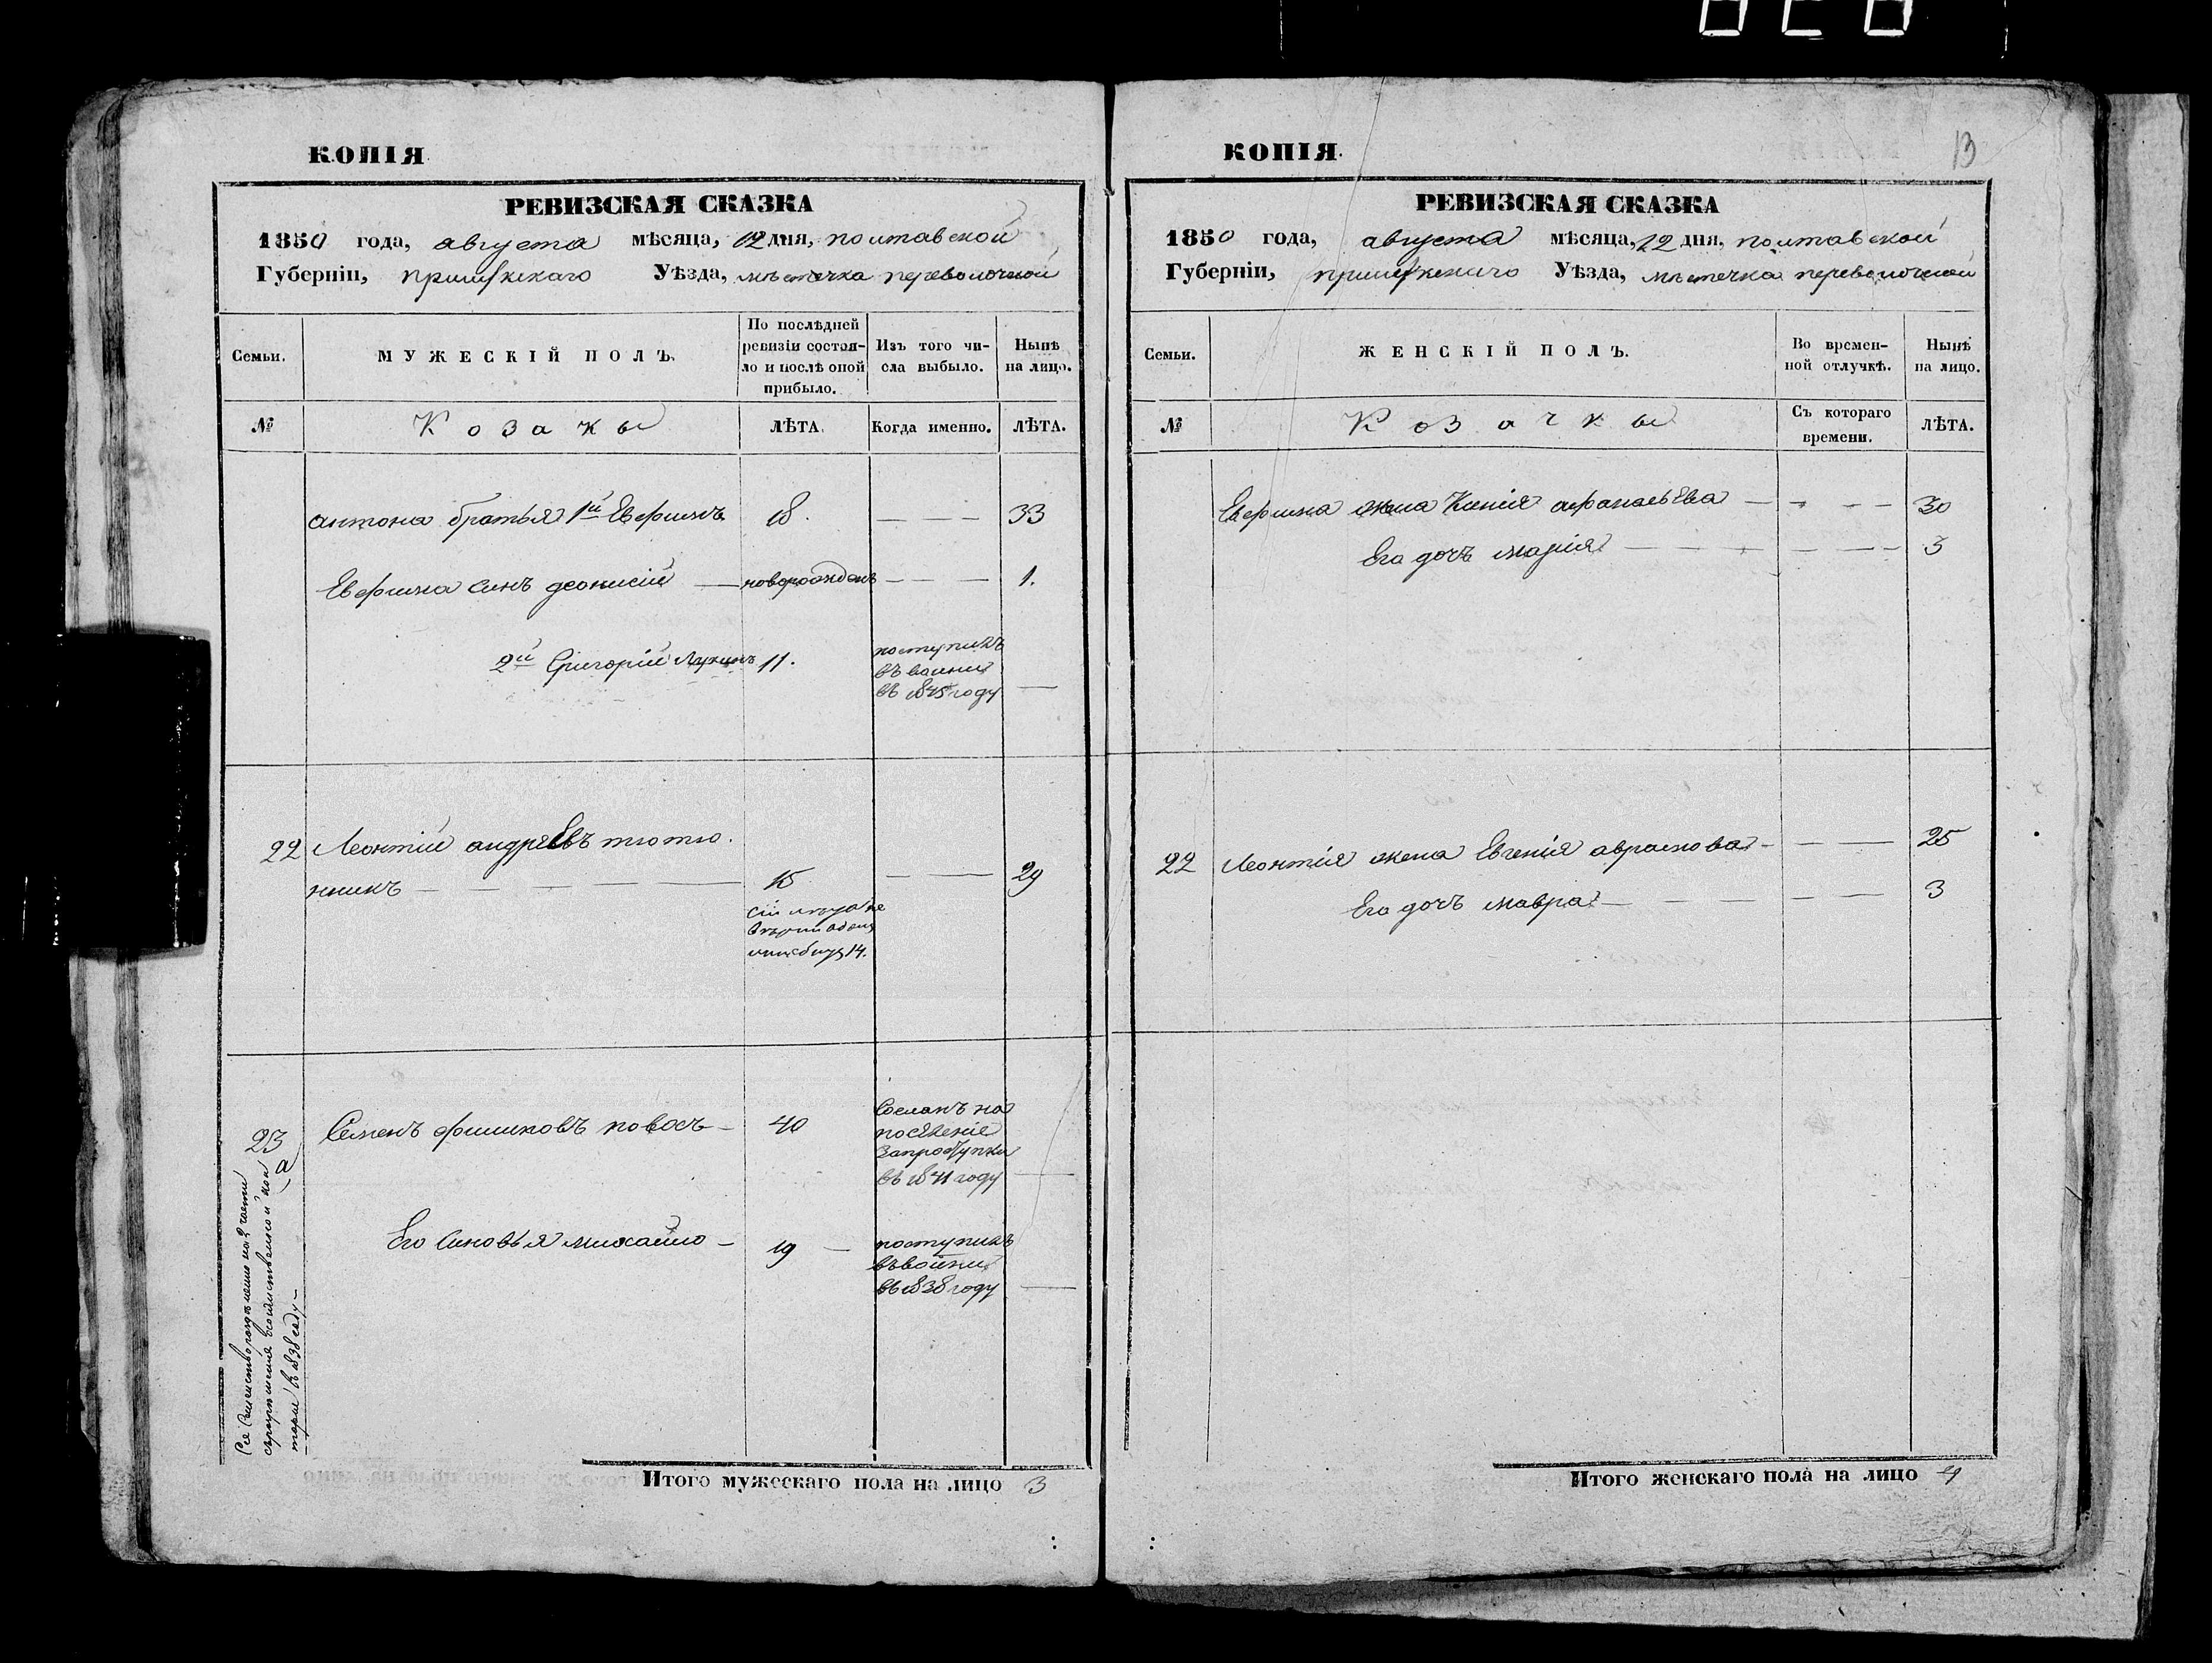 КОПІЯ
РЕВИЗСКАЯ СКАЗКА
1850 года, августа мѣсяца, 12 дня, полтавской
Губерніи, прилуцкаго Уѣзда, мѣстечка переволочной
Семьи.
МУЖЕСКІЙ ПОЛЪ.
По послѣдней
ревизіи состоя-
ло и послѣ оной
прибыло.
Изъ того чи-
сла выбыло.
Нынѣ
на лицо.
№
Козаки
ЛѢТА.
Когда именно.
ЛѢТА.
антона братья 1й Евфимъ 18. — — — 33
Евфима синъ деонисій — новорожденъ — — — 1.
2й Григорій Лукинъ 11.
поступилъ
въ воинни
въ 1845 году —
22 Леонтій андреевъ тютю.
нникъ — — — — — 15 — — 29
14.
23 Семенъ фшиковъ повосъ — 40
а
Сосланъ на
поселеніе
въ 1841 году —
Его синовья михайло — 19 —
поступилъ
въ воинни
въ 1838 году —
Сіе семейство на 2 части
въ 1838 году —
Итого мужескаго пола на лицо 3
КОПІЯ.
13
РЕВИЗСКАЯ СКАЗКА
1850 года, августа мѣсяца, 12 дня, полтавской
Губерніи, прилуцкаго Уѣзда, мѣстечка переволочной
Семьи.
ЖЕНСКІЙ ПОЛЪ.
Во времен-
ной отлучкѣ.
Нынѣ
на лицо.
№
Козачки
Съ котораго
времени.
ЛѢТА.
Евфима жена Ксенія афанасьева — — — — 30
Его дочь марія — — — — — — 3
22 Леонтія жена Евгенія аврамова — — — 25
Его дочь мавра — — — — — 3
Итого женскаго пола на лицо 4